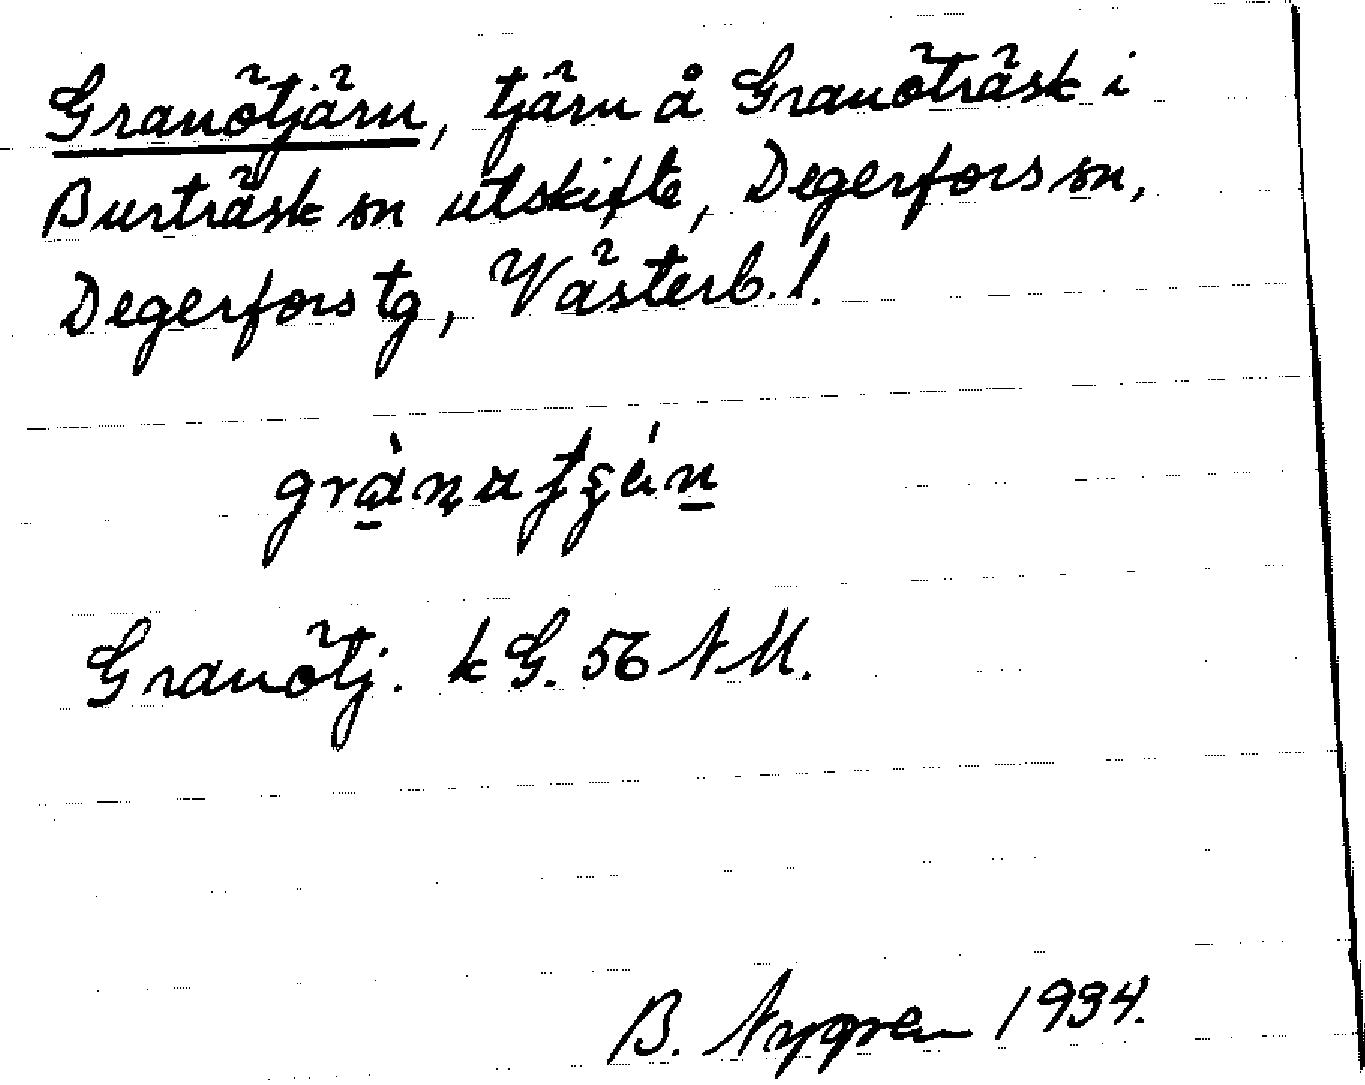 Granötjärn, tjärn å Granöträsk i
Burträsk sn utskifte, Degerfors sn,
Degerfors tg, Västerb. l.
Granötj. k G. 56 NM.
B. Nygren 1934.